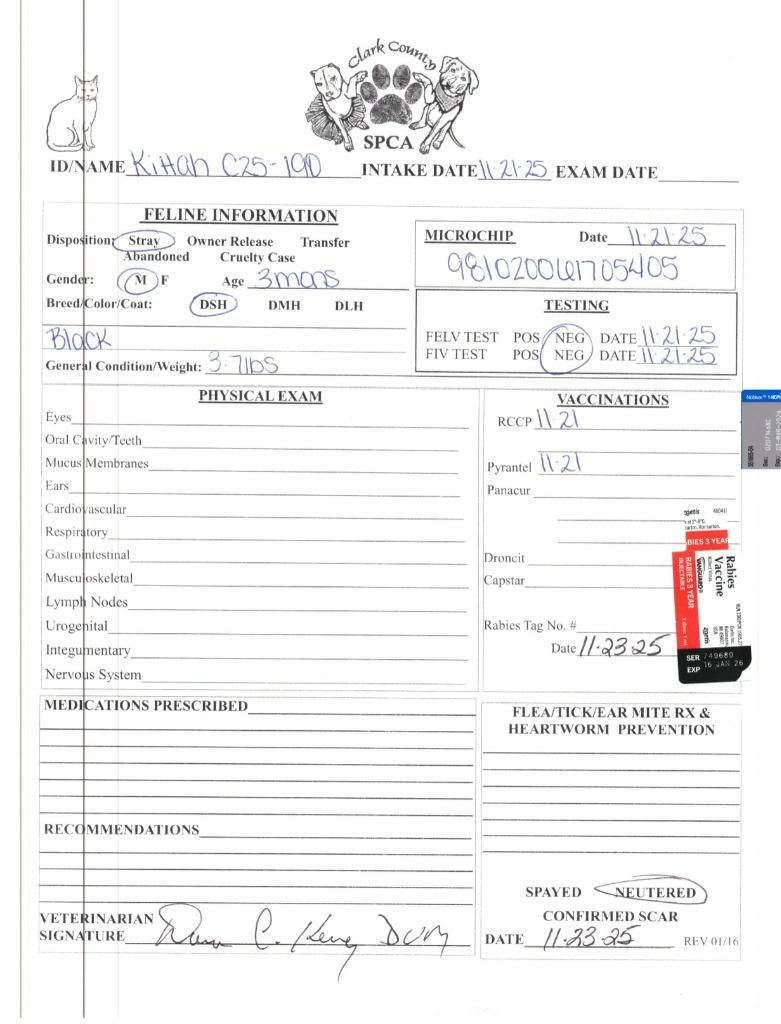 Clark County
SPCA
ID/NAME Kittah C25-190 INTAKE DATE 11-21-25 EXAM DATE
FELINE INFORMATION
Disposition: Stray Owner Release Transfer
Abandoned Cruelty Case
Gender: M F Age 3mons
Breed/Color/Coat: DSH DMH DLH
Black
General Condition/Weight: 3.7lbs
MICROCHIP Date 11-21-25
981020061705405
TESTING
FELV TEST POS NEG DATE 11-21-25
FIV TEST POS NEG DATE 11-21-25
PHYSICAL EXAM
Eyes
Oral Cavity/Teeth
Mucus Membranes
Ears
Cardiovascular
Respiratory
Gastrointestinal
Musculoskeletal
Lymph Nodes
Urogenital
Integumentary
Nervous System
VACCINATIONS
RCCP 11-21
Pyrantel 11-21
Panacur
Droncit
Capstar
Rabies Tag No. #
Date 11-23-25
zoetis
BIES 3 YEAR
RABIES 3 YEAR
INJECTABLE
Rabies
Vaccine
Killed Virus
VANGUARD
zoetis
SER 749689
EXP 16 JAN 26
MEDICATIONS PRESCRIBED
RECOMMENDATIONS
VETERINARIAN
SIGNATURE C. DVM
FLEA/TICK/EAR MITE RX &
HEARTWORM PREVENTION
SPAYED NEUTERED
CONFIRMED SCAR
DATE 11-23-25 REV 01/16